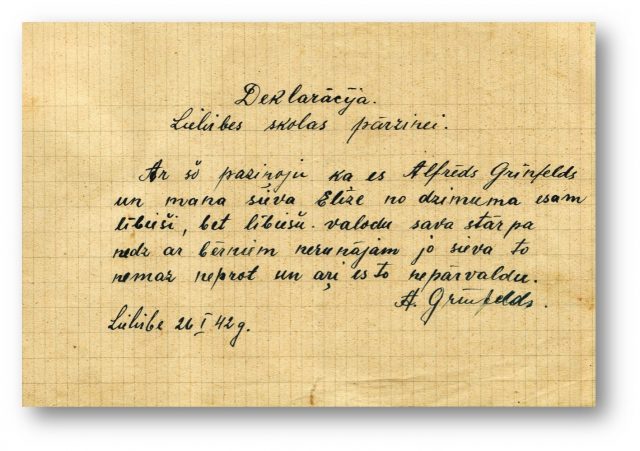 Deklarācija.
Lielirbes skolas pārzinei.
Ar šo paziņoju ka es Alfrēds Grīnfelds
un mana sieva Elīze no dzimuma esam
lībieši, bet lībiešu valodu sava starpa
nedz ar bērniem nerunājam jo sieva to
nemaz neprot un arī es to nepārvaldu.
A. Grīnfelds.
Lielirbe 26 I 42 g.